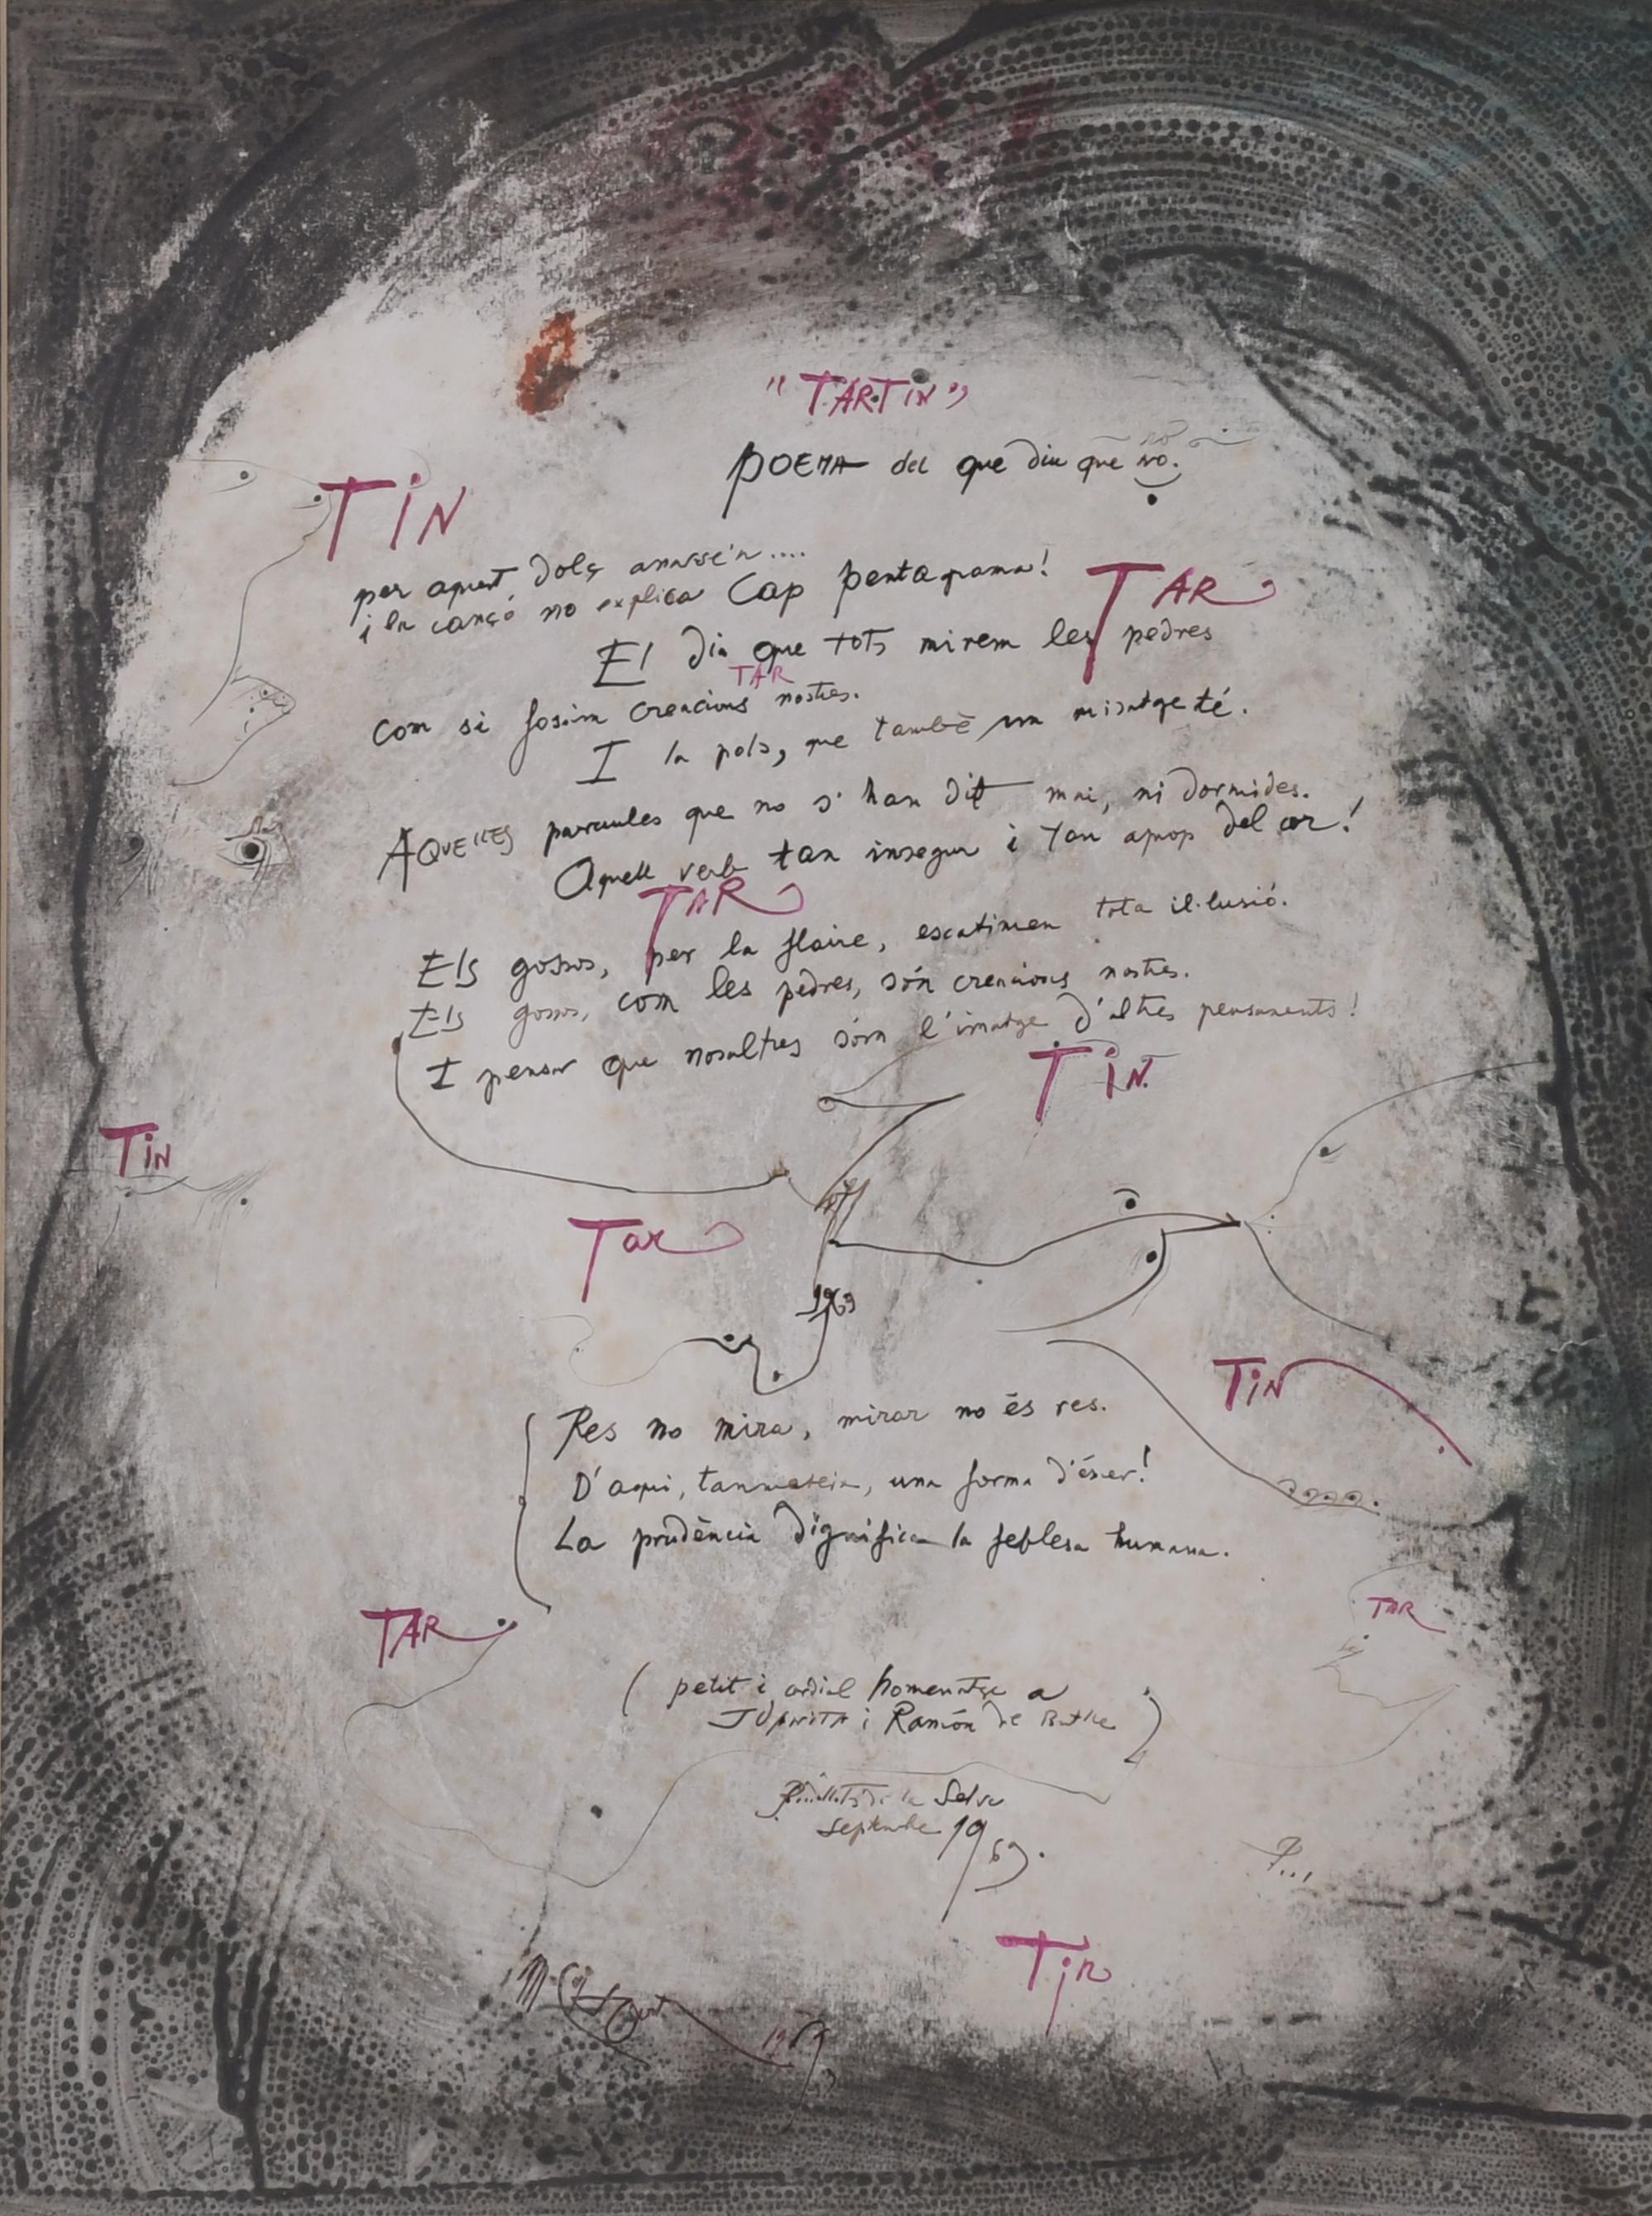 "TARTIN"
POEMA del que diu que no.
TIN
per aquest dolç
i la cançó no explica Cap pentagrama!
TAR
El dia que tots mirem les pedres
TAR
com si fossim creacions nostres.
I la pols, que també un misatge té.
AQUElles paraules que no s'han dit mai, ni dormides.
Aquell verb tan insegur i tan aprop del cor!
TAR
Els gossos, per la flaire, escatimen tota il·lusió.
Els gossos, com les pedres, són creacions nostres.
I pensar que nosaltres som l'imatge d'altres pensaments!
TIN
TIN
Tar
1969
TIN
Res no mira, mirar no és res.
D'aqui, tanmateix, una forma d'ésser!
La prudència dignifica la feblesa humana.
TAR
TAR
(petit i cordial homenatge a
i Ramón de Batlle)
de la Selva
septembre 1969.
P...
Tin